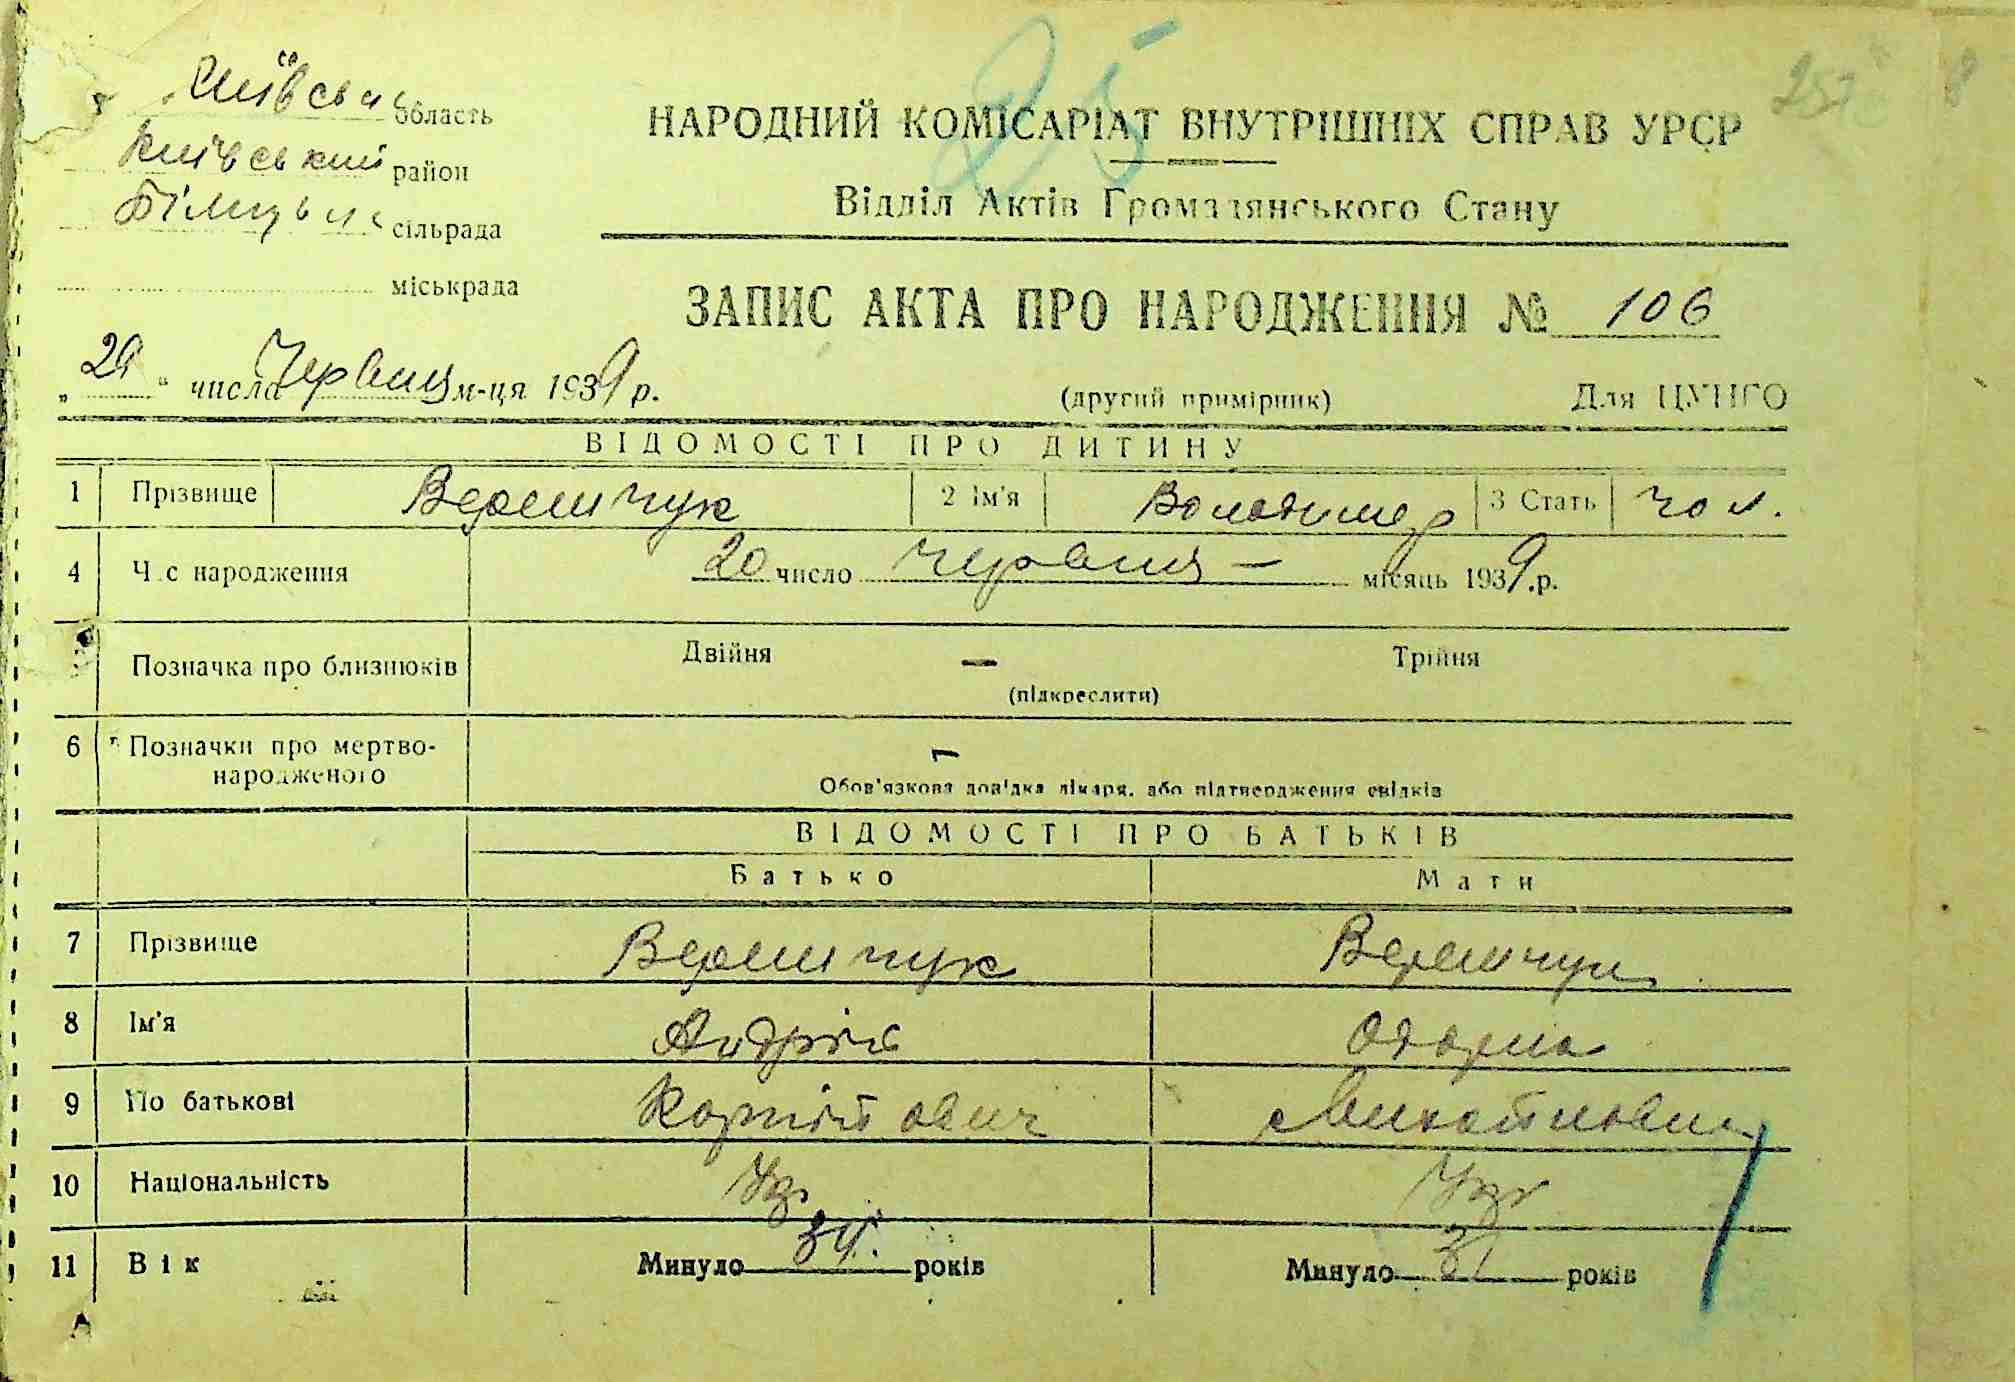 Київська область
Київський район
сільрада
міськрада
25
НАРОДНИЙ КОМІСАРІАТ ВНУТРІШНІХ СПРАВ УРСР
Відділ Актів Громадянського Стану
ЗАПИС АКТА ПРО НАРОДЖЕННЯ № 106
числа Червня м-ця 1939 р. (другий примірник) Для ЦУНГО
ВІДОМОСТІ ПРО ДИТИНУ
1 Прізвище Веремчук 2 Ім'я Володимер 3 Стать чол.
4 Час народження 20 число червня — місяць 1939 р.
Позначка про близнюків Двійня — Трійня
(підкреслити)
6 Позначки про мертво-
народженого —
Обов'язкова довідка лікаря, або підтвердження свідків
ВІДОМОСТІ ПРО БАТЬКІВ
Батько Мати
7 Прізвище Веремчук Веремчук
8 Ім'я Андрій Одарка
9 По батькові Корнійович Михайловна
10 Національність Укр Укр
11 Вік Минуло 34 років Минуло 31 років